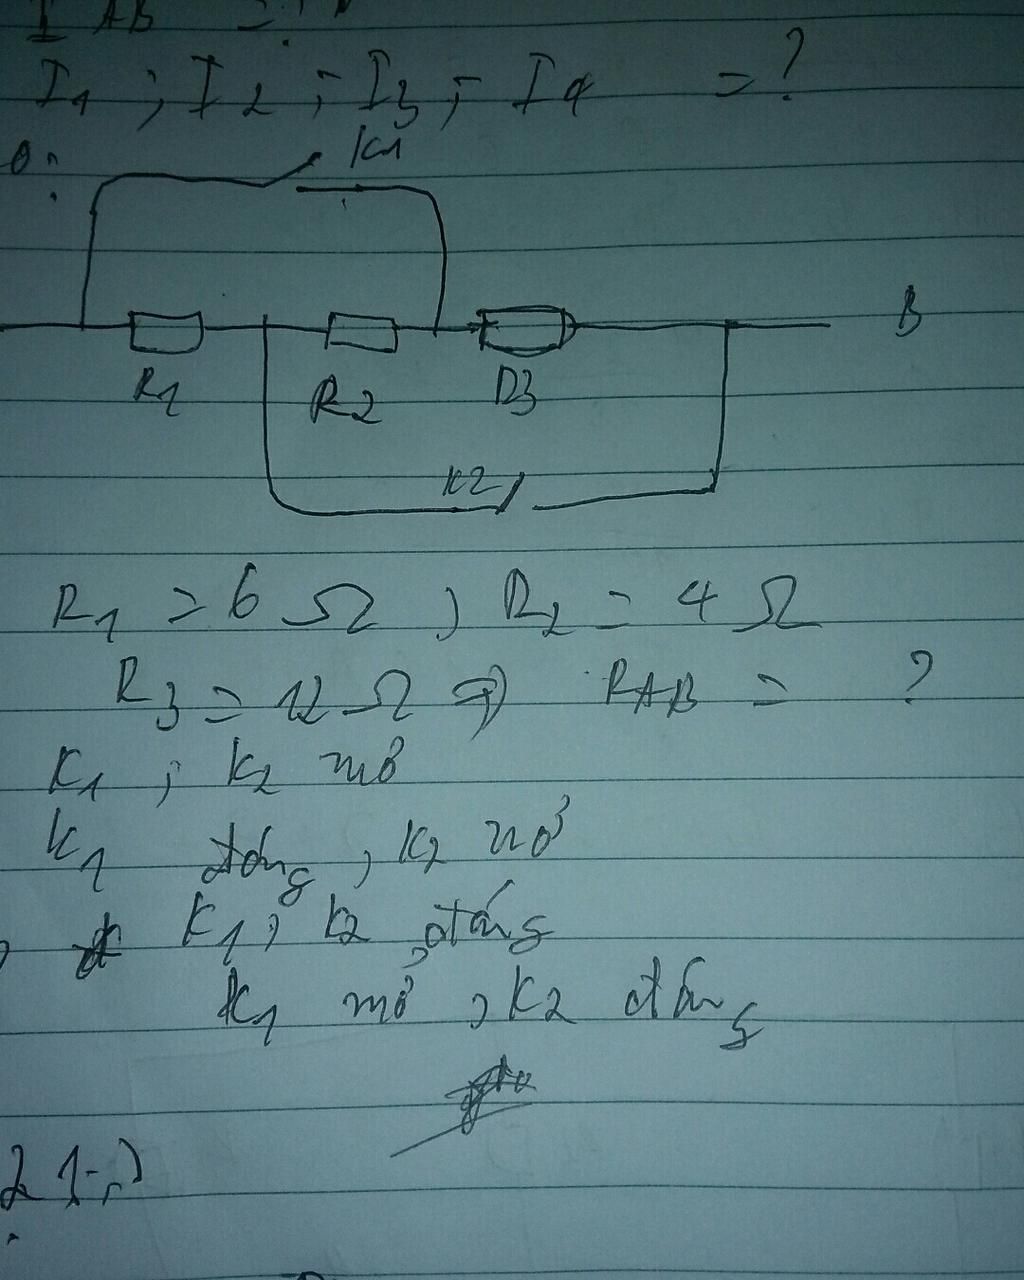 I AB = ?
I1 ; I2 ; I3 ; I4 = ?
K1
B
R1 R2 R3
K2
R1 = 6 Ω ; R2 = 4 Ω
R3 = 12 Ω => RAB = ?
K1 ; K2 mở
K1 đóng, K2 mở
K1, K2 đóng
K1 mở, K2 đóng